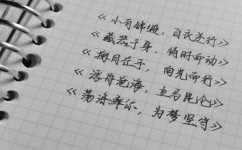 《小有锦缎，白衣逆行》
《藏器于身，待时而动》
《揽月在手，向光而行》
《浮舟沧海，立马昆仑》
《荡涤群尘，为梦坚守》